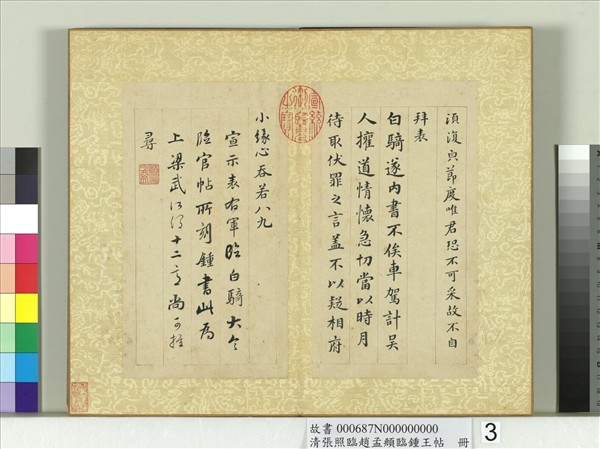 須復與節度唯君恐不可采故不自
拜表
白騎遂内書不俟車駕計吴
人擁道情懷急切當以時月
待取伏罪之言盖不以疑相府
小緣心吞若八九
宣示表右軍臨白騎大令
臨官帖所刻鍾書此為
上梁武所得十二意尚可推
尋
故書 000687N000000000
清張照臨趙孟頫臨鍾王帖 冊
3